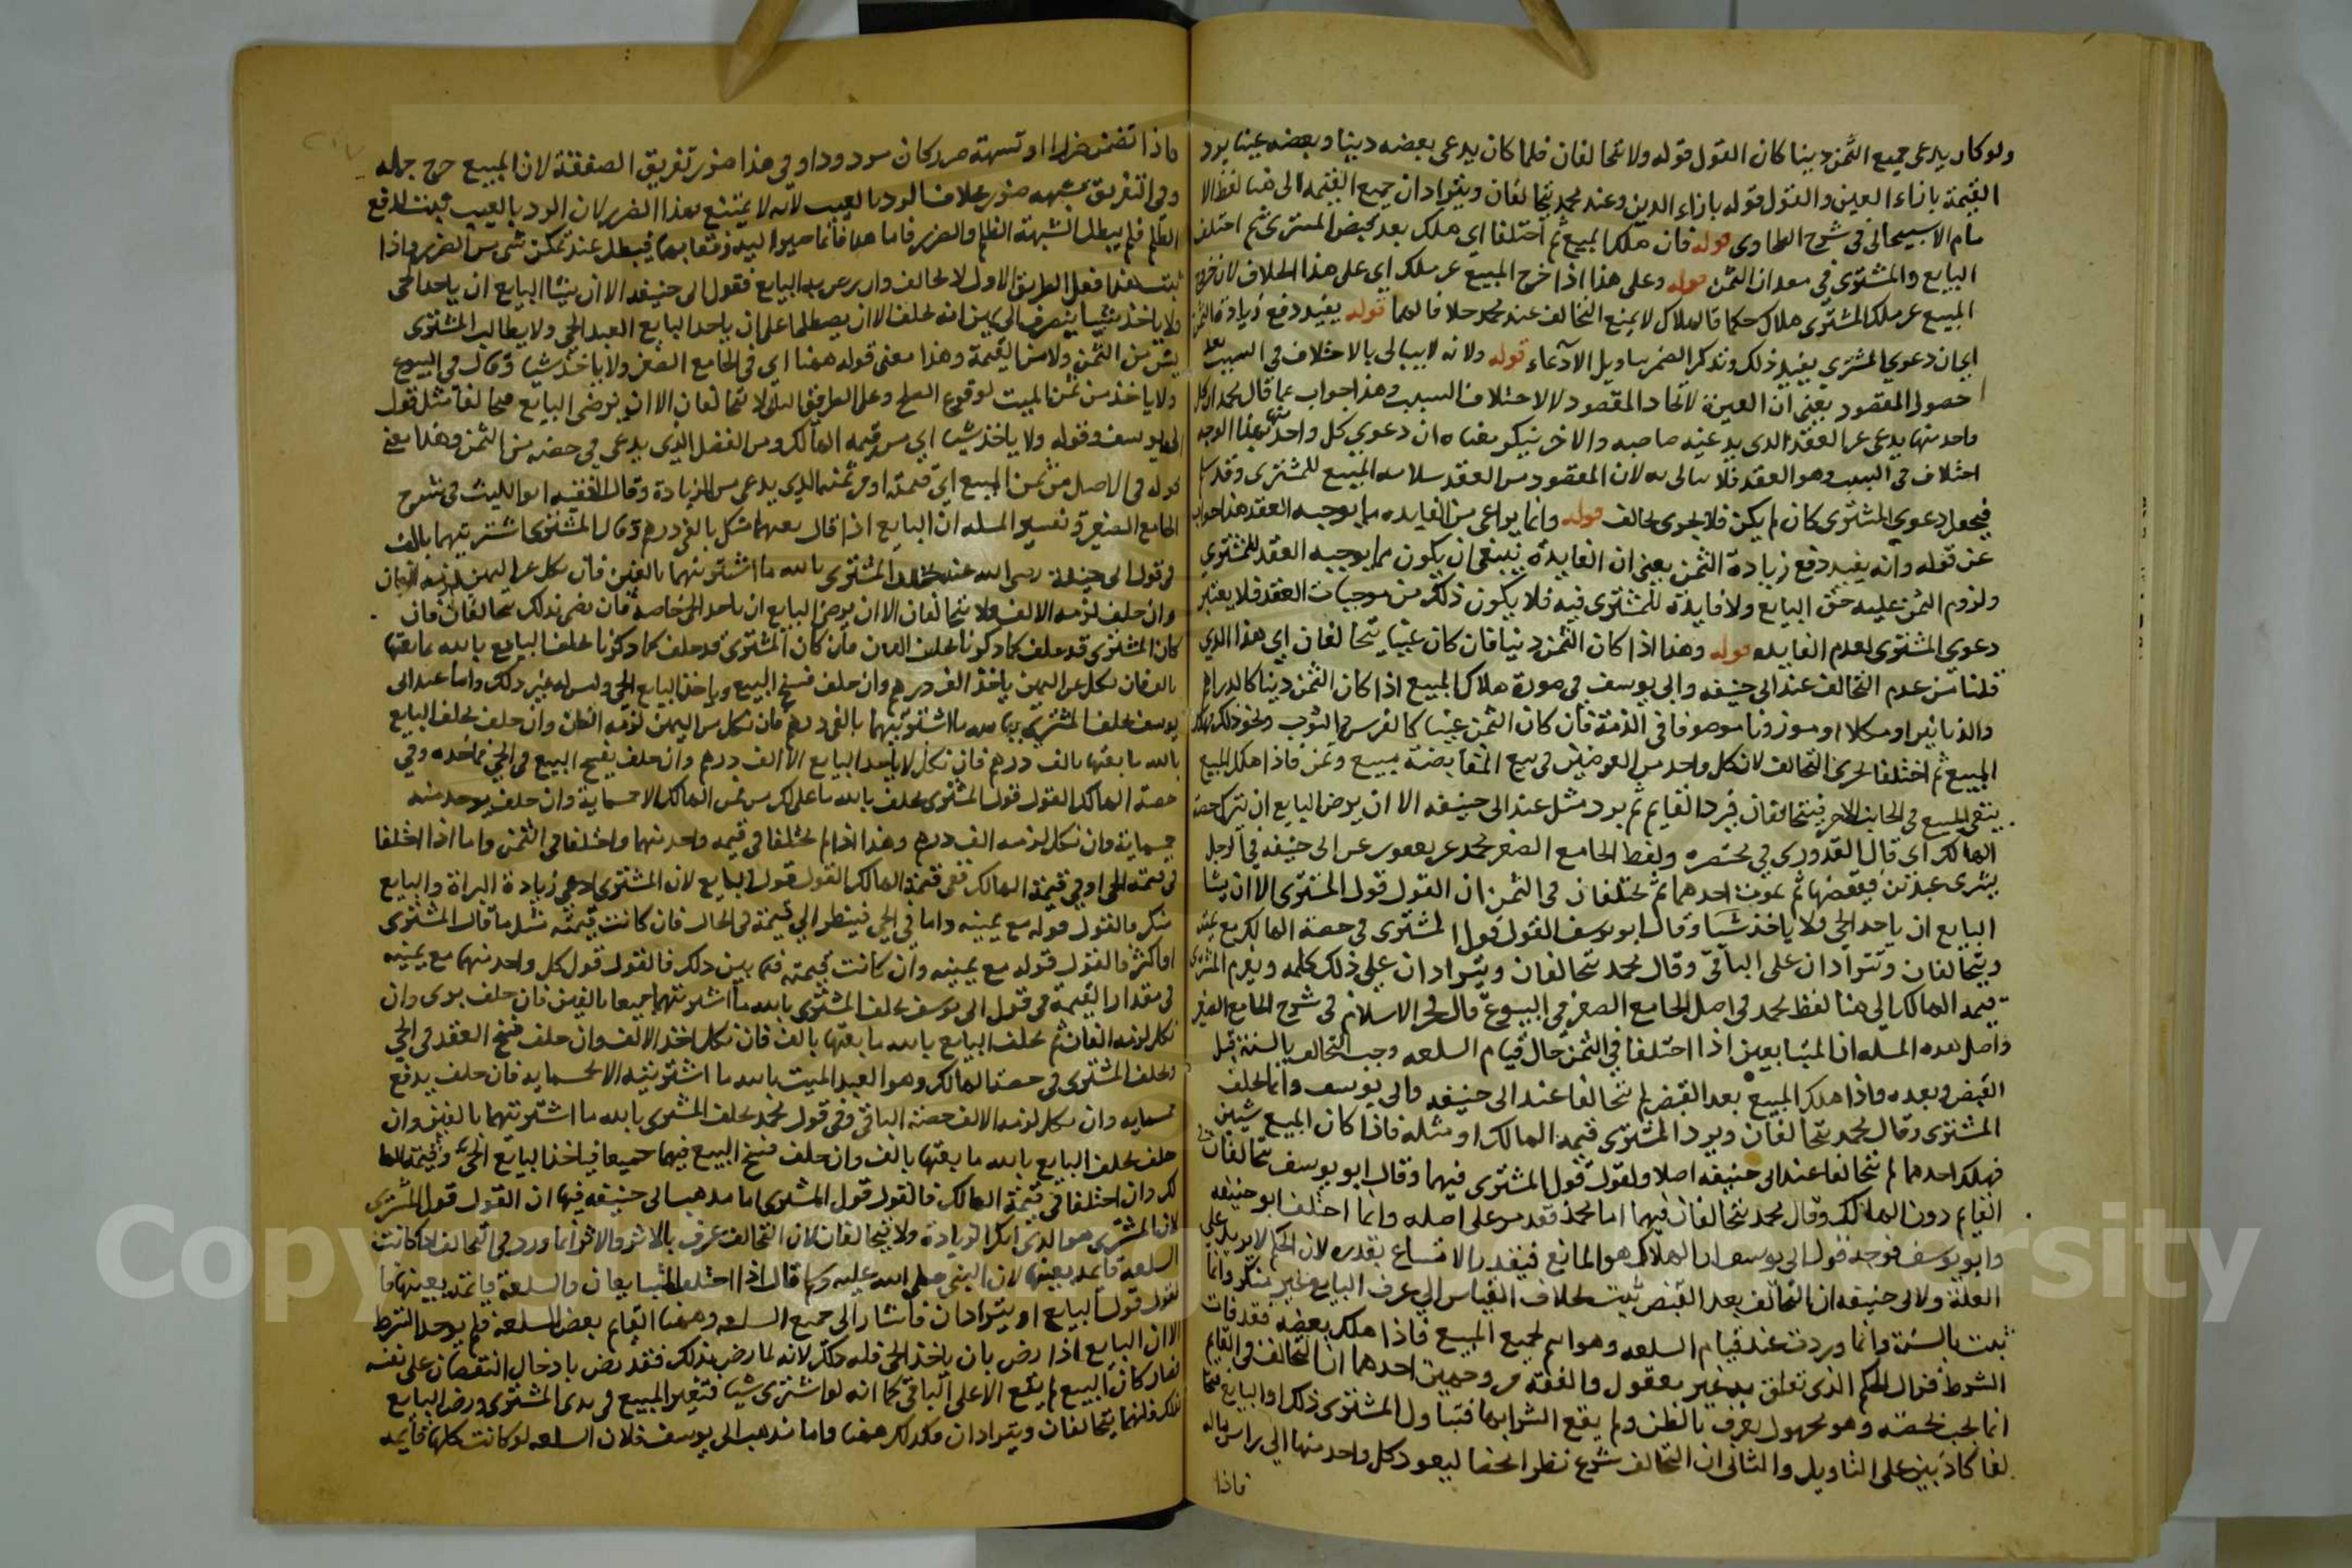 ولو كان يدعى جميع الثمن دينا كان القول قوله ولا تحالفان فلما كان يدعى بعضه دينا وبعضه عينا يرد
القيمة بازاء العين والقول قوله بازاء الدين وعند محمد يتحالفان ويترادان جميع القيمة الى هنا لفظ الا
مام الاسبيجابى فى شرح الطحاوى قوله فان هلك المبيع ثم اختلفا اى هلك بعد قبض المشترى ثم اختلف
البايع والمشترى فى مقدار الثمن قوله وعلى هذا اذا خرج المبيع عن ملكه اى على هذا الخلاف لان خروج
المبيع عن ملك المشترى هلاك حكما فالهلاك لا يمنع التحالف عند محمد خلافا لهما قوله يفيد دفع زيادة الثمن
اى ان دعوى المشترى يفيد ذلك وتذكير الضمير بتاويل الادعاء قوله ولانه لا يبالى بالاختلاف فى السبب بعد
حصول المقصود يعنى ان العبرة لاتحاد المقصود لا لاختلاف السبب وهذا جواب عما قال محمد ان كل
واحد منهما يدعى غير العقد الذى يدعيه صاحبه والاخر ينكره معناه ان دعوى كل واحد منهما
اختلاف فى السبب وهو العقد فلا يبالى به لان المقصود من العقد سلامة المبيع للمشترى وقد سلم
فيجعل دعوى المشترى كان لم يكن فلا يجرى تحالف قوله وانما يراعى من الفايده ما يوجبه العقد هذا جواب
عن قوله وانه يفيد دفع زيادة الثمن يعنى ان الفايدة ينبغى ان يكون مما يوجبه العقد للمشترى
ولزوم الثمن عليه حق البايع ولا فايدة للمشترى فيه فلا يكون ذلك من موجبات العقد فلا يعتبر
دعوى المشترى لعدم الفايده قوله وهذا اذا كان الثمن دينا فان كان عينا يتحالفان اى هذا الذى
قلنا من عدم التحالف عند ابى حنيفه وابى يوسف فى صورة هلاك المبيع اذا كان الثمن دينا كالدراهم
والدنانير او مكيلا او موزونا موصوفا فى الذمة فان كان الثمن عينا كالفرس والثوب ونحو ذلك فهلك
المبيع ثم اختلفا يجرى التحالف لان كل واحد من العوضين فى بيع المقايضة مبيع وثمن فاذا هلك المبيع
يبقى المبيع فى الجانب الاخر فيتحالفان فيرد القايم ثم يرد مثل عند ابى حنيفه الا ان يرض البايع ان يترك حصة
الهالك اى قال القدورى فى مختصره ولفظ الجامع الصغير محمد عن يعقوب عن ابى حنيفه فى الرجل
يشترى عبدين فيقبضهما ثم يموت احدهما ثم يختلفان فى الثمن ان القول قول المشترى الا ان يشا
البايع ان ياخذ الحى ولا ياخذ شيا وقال ابو يوسف القول قول المشترى فى حصة الهالك مع يمينه
ويتحالفان ويترادان على الباقى وقال محمد يتحالفان ويترادان على ذلك كله ويغرم المشترى
قيمة الهالك الى هنا لفظ محمد فى اصل الجامع الصغير فى البيوع قال فخر الاسلام فى شرح الجامع الصغير
واصل هذه المسله ان المتبايعين اذا اختلفا فى الثمن حال قيام السلعه وجب التحالف بالسنة قبل
القبض وبعده فاذا هلك المبيع بعد القبض لم يتحالفا عند ابى حنيفه وابى يوسف وانما يحلف
المشترى وقال محمد يتحالفان ويرد المشترى قيمة الهالك او مثله فاذا كان المبيع شيين
فهلك احدهما لم يتحالفا عند ابى حنيفه اصلا والقول قول المشترى فيهما وقال ابو يوسف يتحالفان فى
القايم دون الهالك وقال محمد يتحالفان فيهما اما محمد فقد مر على اصله وانما اختلف ابو حنيفه
وابو يوسف فوجه قول ابى يوسف ان الهلاك هو المانع فيتقدر الامتناع بقدره لان الحكم لا يزيد على
العلة ولابى حنيفه ان التحالف بعد القبض ثبت بخلاف القياس اى عرف البايع غير منكر وانما
ثبت بالسنة وانما وردت عند قيام السلعه وهو اسم لجميع المبيع فاذا هلك بعضه فقد فات
الشرط فزال الحكم الذى تعلق به غير معقول والفقه من وجهين احدهما ان التحالف فى القايم
انما يجب بحصته وهو مجهول يعرف بالظن ولم يقع الشرا بها فتناول المشترى ذلك او البايع
والثانى ان التحالف شرع نظرا لهما ليعود كل واحد منهما الى راس ماله
فاذا
فاذا تضمن ضررا او شبهة ضرر كان مردودا وفى هذا ضرر تفريق الصفقة لان المبيع خرج جمله
وفى التفريق شبهه ضرر بخلاف الرد بالعيب لانه لا يمتنع بهذا الضرر لان الرد بالعيب ثبت لدفع
الظلم فلم يبطل لشبهة الظلم والضرر فاما هنا فانما فيبطل عند تمكن شى من الضرر واذا
ثبت هذا فعلى الطريق الاول لا تحالف البايع فقول ابى حنيفه الا ان يشا البايع ان ياخذ الحى
ولا ياخذ شيا ينصرف الى يمين انه يحلف الا ان يصطلحا على ان ياخذ البايع العبد الحى ولا يطالب المشترى
بشى من الثمن ولا من القيمة وهذا معنى قوله ههنا اى فى الجامع الصغير ولا ياخذ شيا وقال فى البيوع
ولا ياخذ من ثمن الميت لوقوع الصلح وعلى الطريق الثانى لا يتحالفان الا ان يرضى البايع فيتحالفا مثل قول
ابى يوسف وقوله ولا ياخذ شيا اى من قيمة الهالك ومن الفضل الذى يدعى فى حصته من الثمن وهذا معنى
قوله فى الاصل من ثمن المبيع اى قيمته او من ثمنه الذى يدعى من الزيادة وقال الفقيه ابو الليث فى شرح
الجامع الصغير وتفسير المسله ان البايع اذا قال بعتهما منك بالفى درهم وقال المشترى اشتريتهما بالف
فى قول ابى حنيفة رضى الله عنه يحلف المشترى بالله ما اشتريتهما بالفين فان نكل عن اليمين لزمه الفان
وان حلف لزمه الالف ولا يتحالفان الا ان يرضى البايع ان ياخذ الحى خاصة فان رضى بذلك يتحالفان فان
كان المشترى قد حلف كما ذكرنا يحلف البايع بالله ما بعتهما
بالف فان نكل عن اليمين ياخذ الف درهم وان حلف فسخ البيع وياخذ البايع الحى وليس له غير ذلك واما عند ابى
يوسف يحلف المشترى بالله ما اشتريتهما بالفى درهم فان نكل عن اليمين لزمه الفان وان حلف يحلف البايع
بالله ما بعتهما بالف درهم فان نكل لا ياخذ البايع الا الف درهم وان حلف يفسخ البيع فى الحى فياخذه وفى
حصة الهالك القول قول المشترى يحلف بالله ما على لك من ثمن الهالك الا خمسماية وان حلف يوخذ منه
خمسماية وان نكل لزمه الف درهم وهذا اذا لم يختلفا فى قيمة واحد منهما واختلفا فى الثمن واما اذا اختلفا
فى قيمة الحى او فى قيمة الهالك ففى قيمة الهالك القول قول البايع لان المشترى ادعى زيادة البراة والبايع
منكر فالقول قوله مع يمينه واما فى الحى فينظر الى قيمة فى الحال فان كانت قيمته مثل ما قال المشترى
او اكثر فالقول قوله مع يمينه وان كانت قيمته فيما بين ذلك فالقول قول كل واحد منهما مع يمينه
فى مقدار القيمة فى قول ابى يوسف يحلف المشترى بالله ما اشتريتهما جميعا بالفين فان حلف برى وان
نكل لزمه الفان ثم يحلف البايع بالله ما بعتهما بالف فان نكل اخذ الالف وان حلف فسخ العقد فى الحى
ويحلف المشترى فى حصة الهالك وهو العبد الميت بالله ما اشتريته الا بخمسمايه فان حلف يدفع
خمسمايه وان نكل لزمه الالف حصة الباقى وفى قول محمد يحلف المشترى بالله ما اشتريتهما بالفين وان
حلف يحلف البايع بالله ما بعتهما بالف وان حلف فسخ البيع فيهما جميعا فياخذ البايع الحى وقيمة الها
لك وان اختلفا فى قيمة الهالك فالقول قول المشترى اما مذهب ابى حنيفه فيها ان القول قول المشترى
لان المشترى هو الذى انكر الزيادة ولا يتحالفان لان التحالف عرف بالاثر والاثر انما ورد فى التحالف اذا كانت
السلعة قايمة بعينها لان النبى صلى الله عليه وسلم قال اذا اختلف المتبايعان والسلعة قايمة بعينها فا
لقول قول البايع او يترادان فاشار الى جميع السلعه وههنا القايم بعض السلعة فلم يوجد الشرط
الا ان البايع اذا رض بان ياخذ الحى فله ذلك لانه لما رض بذلك فقد رض بادخال النقصان على نفسه
فصار كان البيع لم يقع الا على الباقى كما انه لو اشترى شيا فتغير المبيع فى يدى المشترى ورض البايع
بذلك فانهما يتحالفان ويترادان فكذلك ههنا واما مذهب ابى يوسف فلان السلعه لو كانت كلها قايمه
Copyright © King Saud University